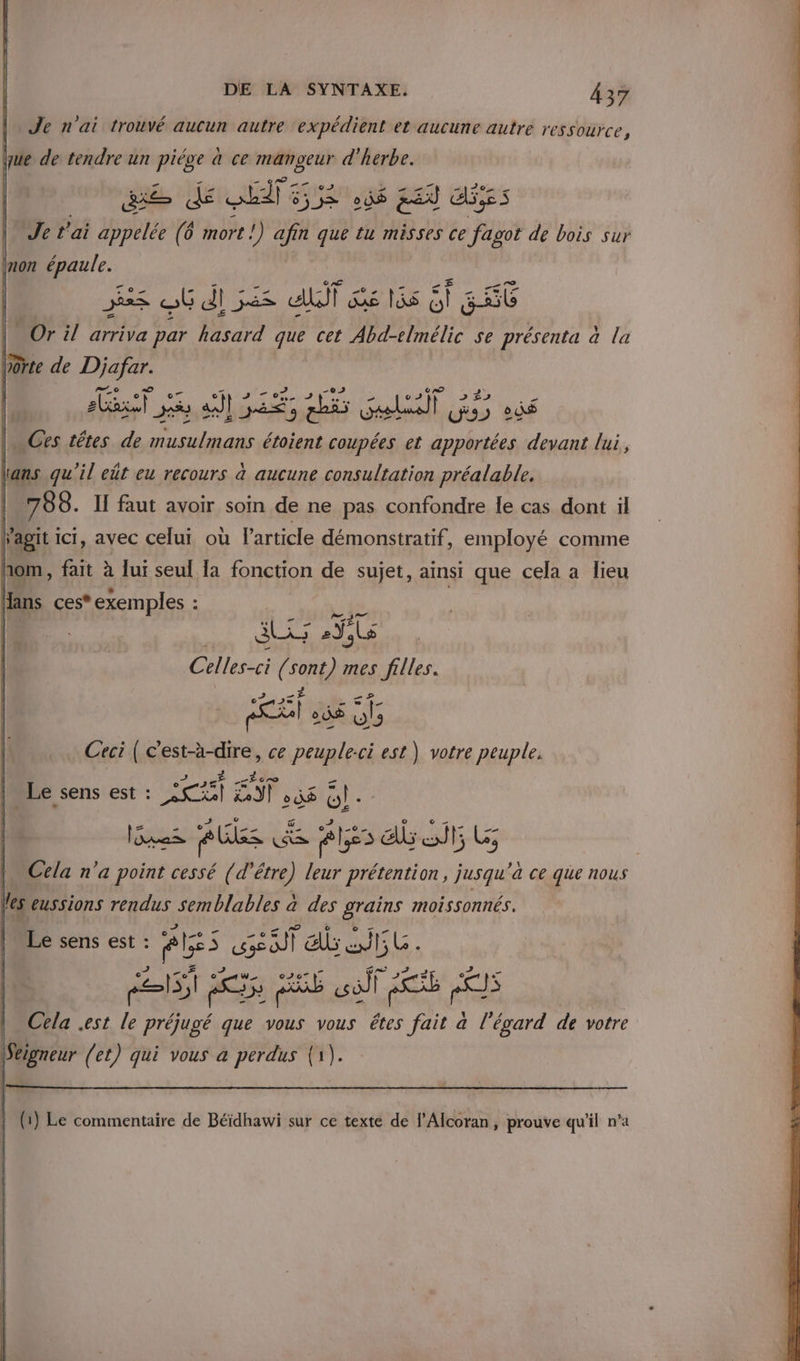 DE LA SYNTAXE. 437
Je n'ai trouvé aucun autre expédient et aucune autre ressource,
que de tendre un piége à ce mangeur d'herbe.
دعوتك لتضع هذه حزرة الحطب على كتفى
Je t'ai appelée (ô mort!) afin que tu misses ce fagot de bois sur
mon épaule.
فاتفق أن هذا عبد الملك حضر إلى باب جعفر
Or il arriva par hasard que cet Abd-elmélic se présenta à la
porte de Djafar.
هذه روس المسلمين تقطع وتحضر إليه بغير استفتاء
Ces têtes de musulmans étoient coupées et apportées devant lui,
sans qu'il eût eu recours à aucune consultation préalable.
788. Il faut avoir soin de ne pas confondre le cas dont il
s'agit ici, avec celui où l'article démonstratif, employé comme
nom, fait à lui seul la fonction de sujet, ainsi que cela a lieu
dans ces exemples :
هاؤلاء بناتى
Celles-ci (sont) mes filles.
وإن هذه أمتكم
Ceci ( c'est-à-dire, ce peuple-ci est ) votre peuple.
Le sens est : إن هذه الأمة أمتكم.
وما زالت تلك دعواهم حتى جعلناهم حصيدا
Cela n'a point cessé (d'être) leur prétention, jusqu'à ce que nous
les eussions rendus semblables à des grains moissonnés.
Le sens est : ما زالت تلك الدعوى دعواهم.
ذلكم ظنكم الذى ظننتم بربكم ارداكم
Cela est le préjugé que vous vous êtes fait à l'égard de votre
Seigneur (et) qui vous a perdus (1).
(1) Le commentaire de Béïdhawi sur ce texte de l'Alcoran, prouve qu'il n'a